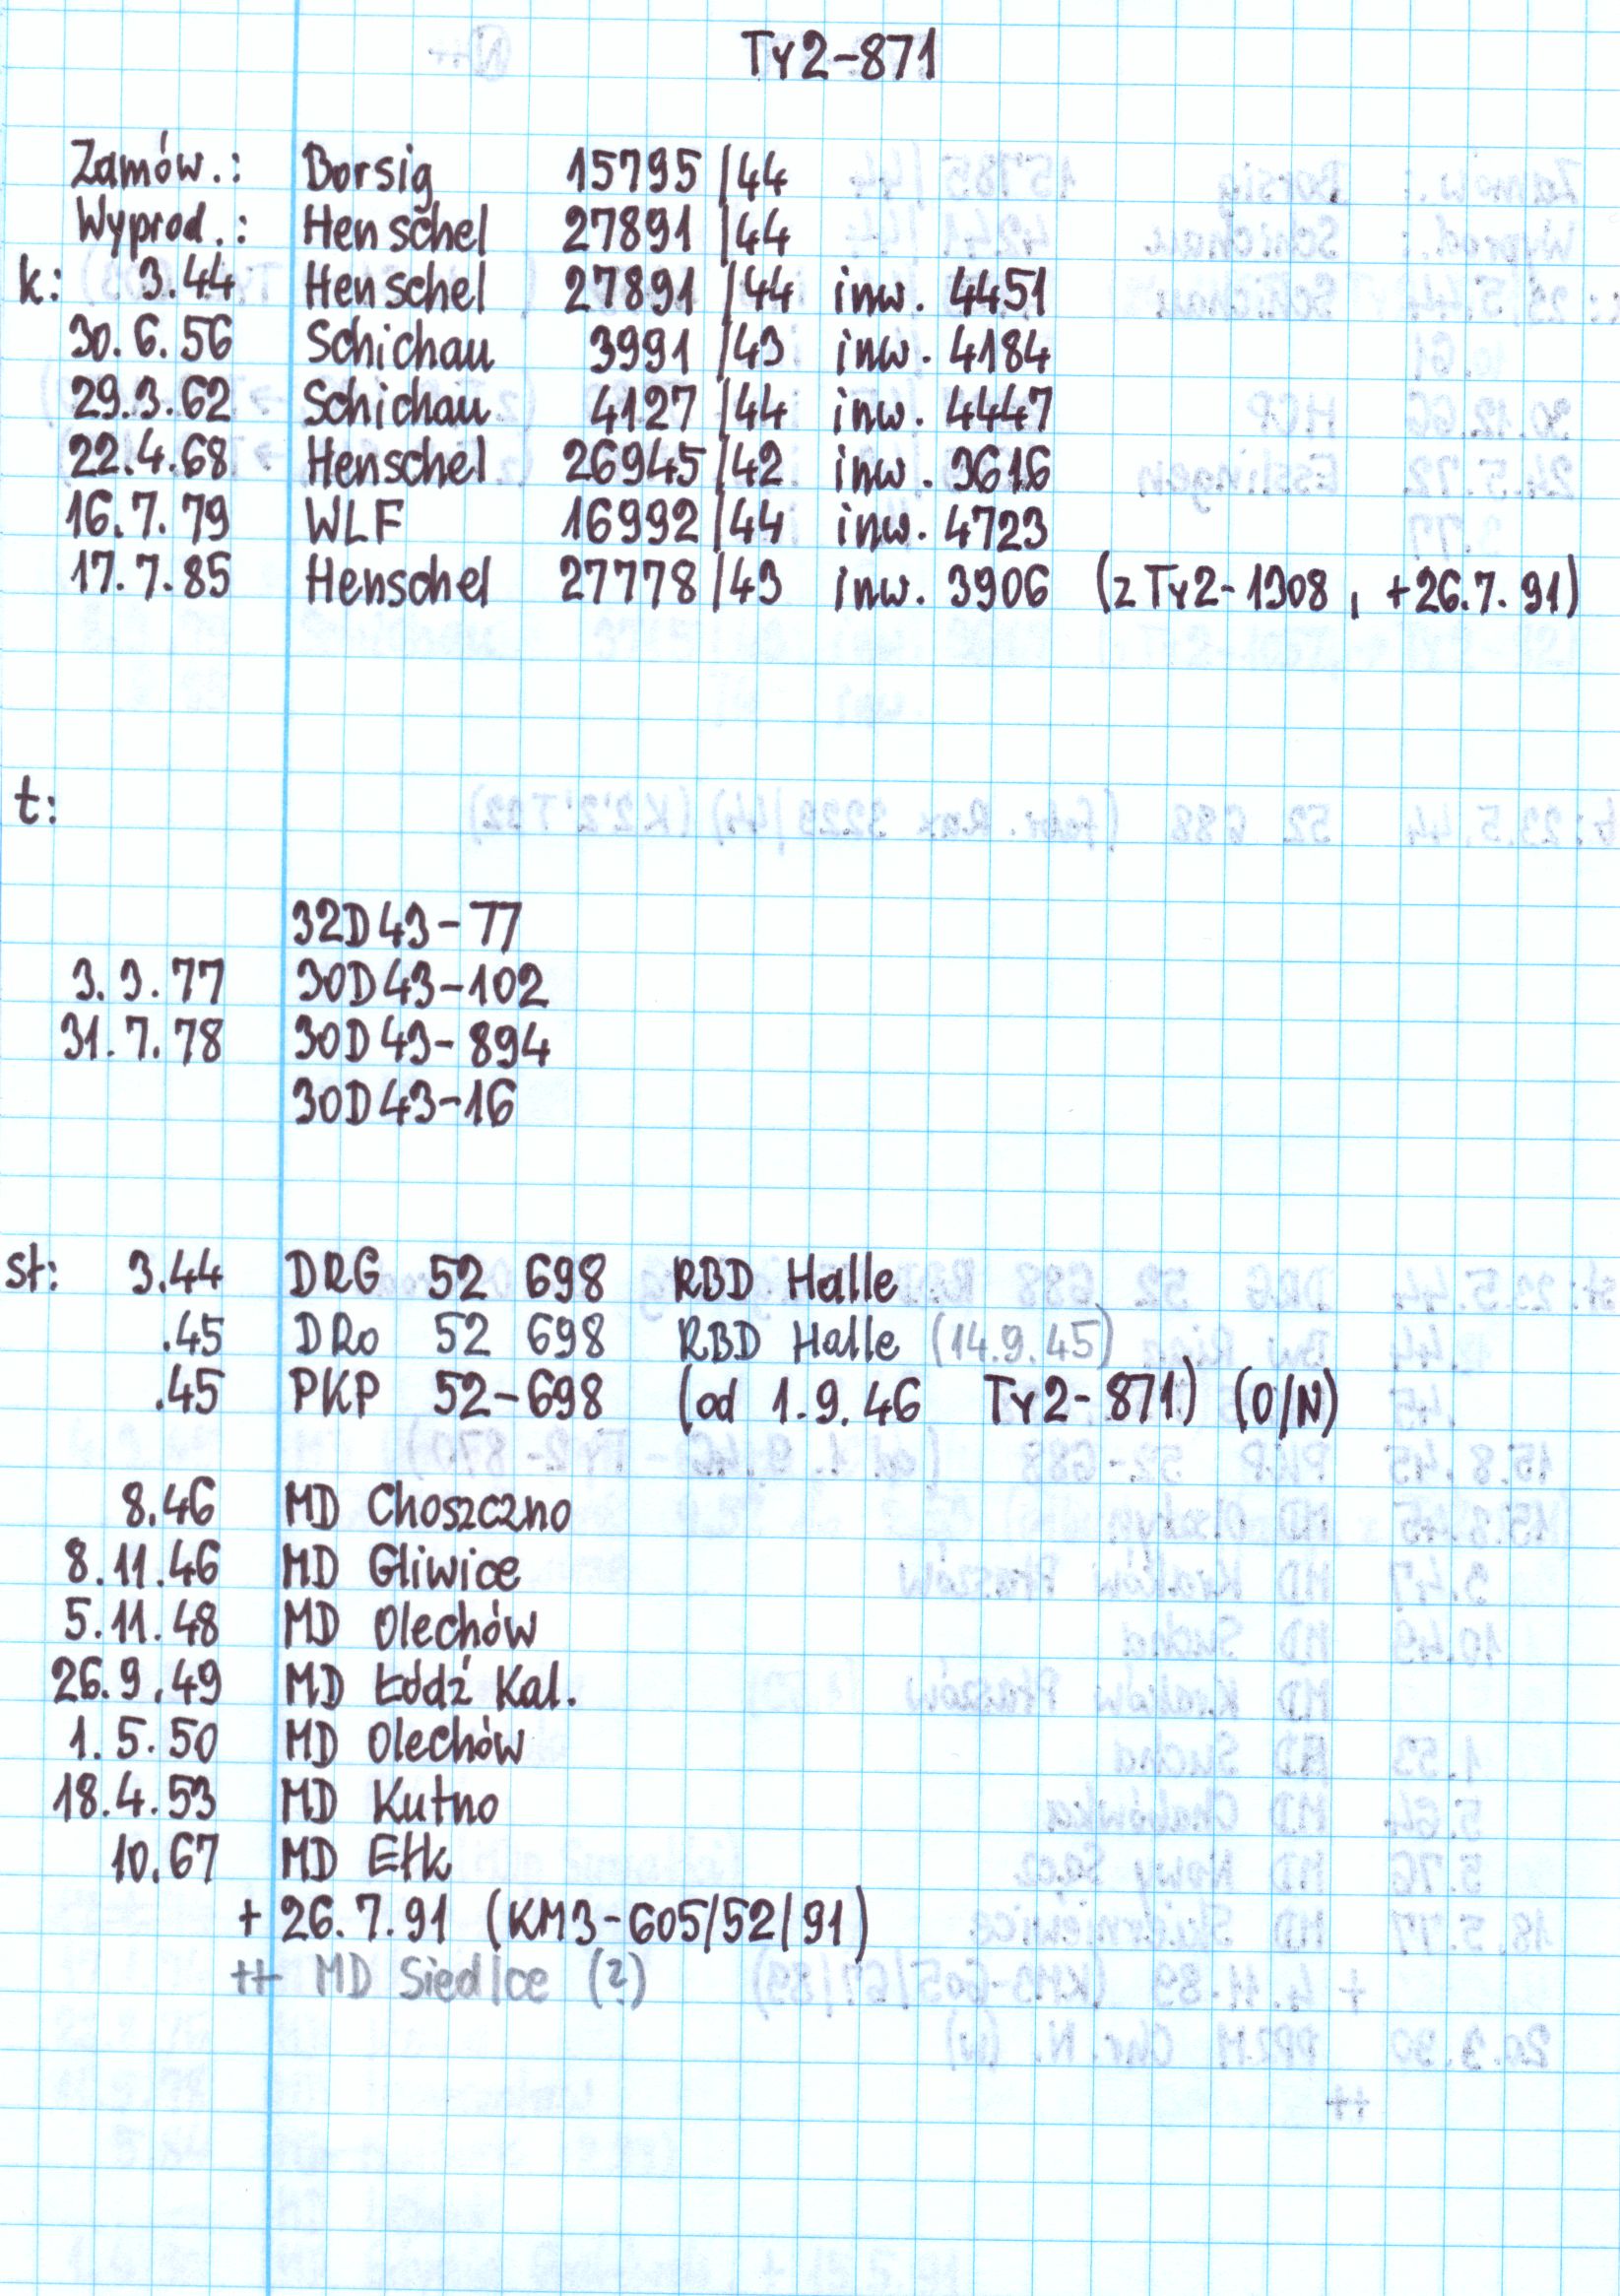 Ty2-871
Zamów.: Borsig 15795/44
Wyprod.: Henschel 27891/44
k: 3.44 Henschel 27891/44 inw. 4451
30.6.56 Schichau 3991/43 inw. 4184
29.3.62 Schichau 4127/44 inw. 4447
22.4.68 Henschel 26945/42 inw. 3616
16.7.79 WLF 16992/44 inw. 4723
17.7.85 Henschel 27778/43 inw. 3906 (z Ty2-1308, +26.7.91)
t:
32D43-77
3.3.77 30D43-102
31.7.78 30D43-894
30D43-16
st: 3.44 DRG 52 698 RBD Halle
.45 DRo 52 698 RBD Halle (14.9.45)
.45 PKP 52-698 (od 1.9.46 Ty2-871) (O/N)
8.46 MD Choszczno
8.11.46 MD Gliwice
5.11.48 MD Olechów
26.9.49 MD Łódź Kal.
1.5.50 MD Olechów
18.4.53 MD Kutno
10.67 MD Ełk
+ 26.7.91 (KM3-605/52/91)
++ MD Siedlce (?)